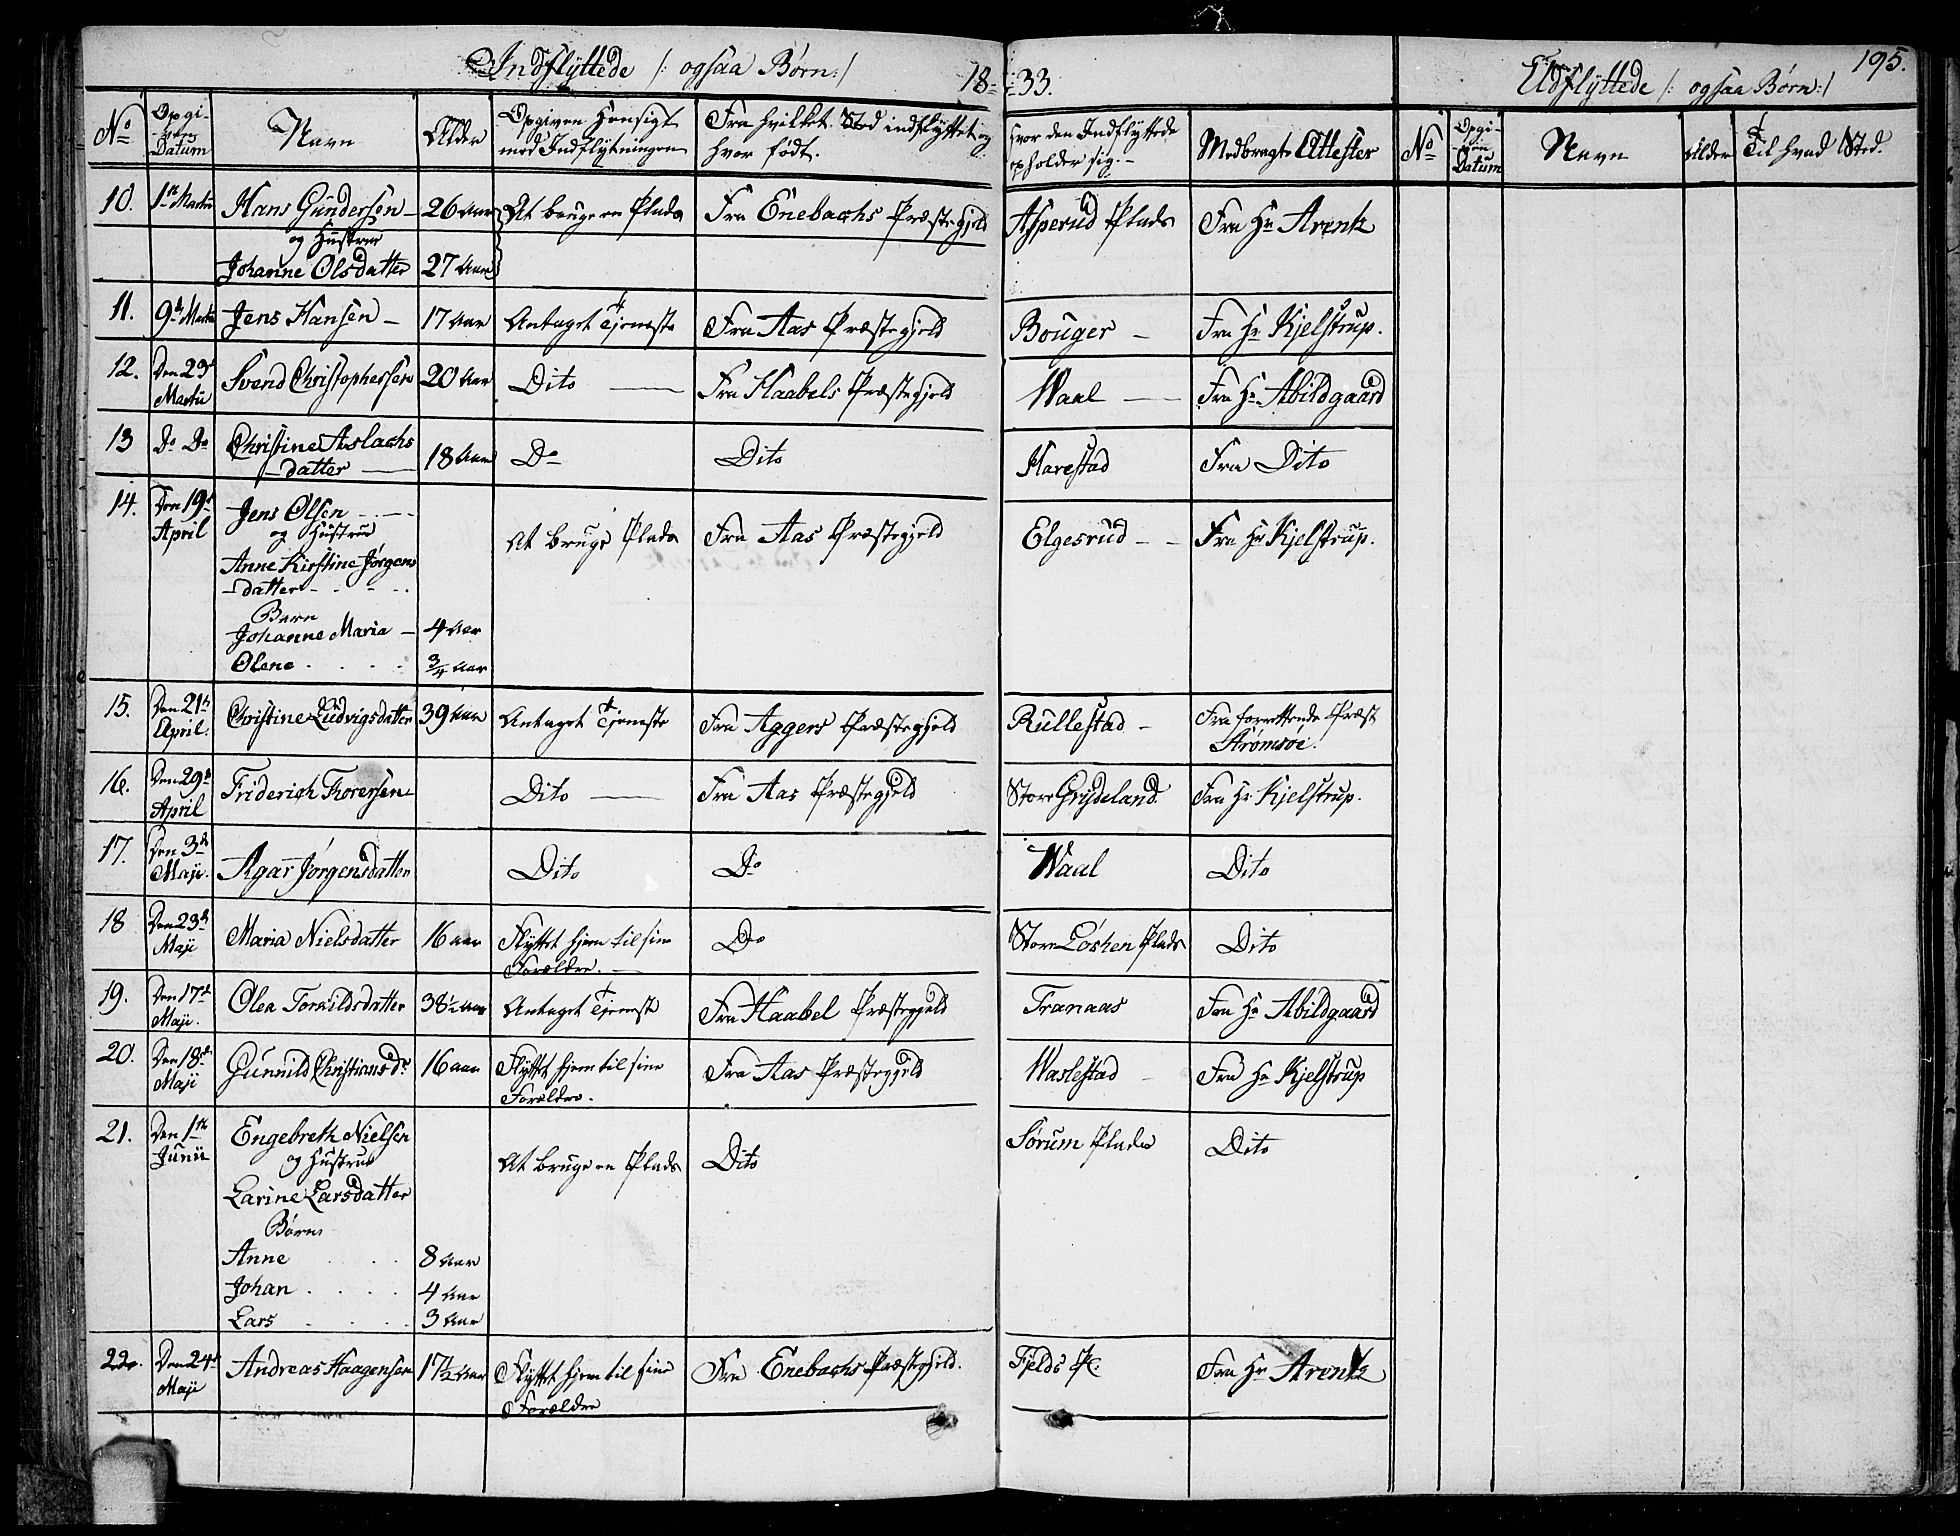 Indflyttede /: ogsaa Børn :/ 18-33. Udflyttede /: ogsaa Børn :/ 195.
No Opgi-ven Datum Navn Alder Opgiven Hensigt med Indflytningen Fra hvilket Sted indflyttet og hvor født. hvor den Indflyttede opholder sig.- Medbragte Attester No Opgi-ven Datum Navn Alder Til hvad Sted.
10. 1ste Martii Hans Gundersen - 26 Aar At bruge en Plads Fra Enebachs Præstegjeld Asperud Plads Fra Hr Arentz
og Hustrue
Johanne Olsdatter 27 Aar
11. 9de Martii Jens Hansen - 17 Aar Antaget Tjeneste Fra Aas Præstegjeld Bouger - Fra Hr Kjelstrup.
12. Den 29 Martii Svend Christophersen 20 Aar Dito Fra Haabels Præstegjeld Waal - Fra Hr Abildgaard
13 Do Do Christine Aslachs 18 Aar Do Dito Harestad Fra Dito
-datter
14. Den 19de April Jens Olsen At bruge Plads Fra Aas Præstegjeld Elgesrud - - Fra Hr Kjelstrup.
og Hustrue
Anne Kirstine Jørgens
-datter
Børn
Johanne Maria - 4 Aar
Olene 3/4 Aar
15. Den 21de April. Christine Ludvigsdatter 39 Aar Antaget Tjeneste Fra Aggers Præstegjeld Rullestad - Fra forrettende Præst Strømsöe.
16. Den 29de April Friderich Thoresen Dito Fra Aas Præstegjeld Store Grisdeland Fra Hr Kjelstrup.
17. Den 3de Maji. Agar Jørgensdatter Dito Do Waal Dito
18 Den 23de Maji Maria Nielsdatter 16 aar Flyttet hjem til sine Forældre. Do Store Löshen Plads Dito
19. Den 17de Maji. Olea Torvildsdatter 38½ Aar Antaget Tjeneste Fra Haabel Præstegjeld Tranaas Fra Hr Abildgaard
20. Den 18de Maji Gunnild Christiansdr 16 aar Flyttet hjem til sine Forældre. Fra Aas Præstegjeld Waslestad Fra Hr Kjelstrup
21. Den 1ste Junii Engebreth Nielsen At bruge en Plads Dito Sörum Plads Dito
og Hustrue
Larine Larsdatter
Børn
Anne 8 Aar
Johan 4 Aar
Lars 3 Aar
22. Den 24de Maji Andreas Haagensen 17½ Aar Flyttet hjem til sine Forældre Fra Enebachs Præstegjeld. Fjelds Pl. Fra Hr Arentz